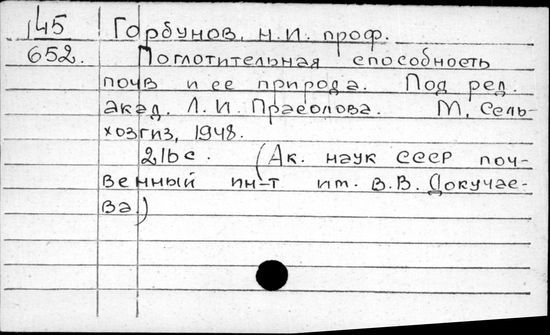 145 Горбунов, Н.И. проф.
652. Поглотительная способность
почв и ее природа. Под ред.
акад. Л.И. Прасолова. М, Сель-
хозгиз, 1948.
216 с. (Ак. наук СССР поч-
венный ин-т им. В.В. Докучае-
ва)